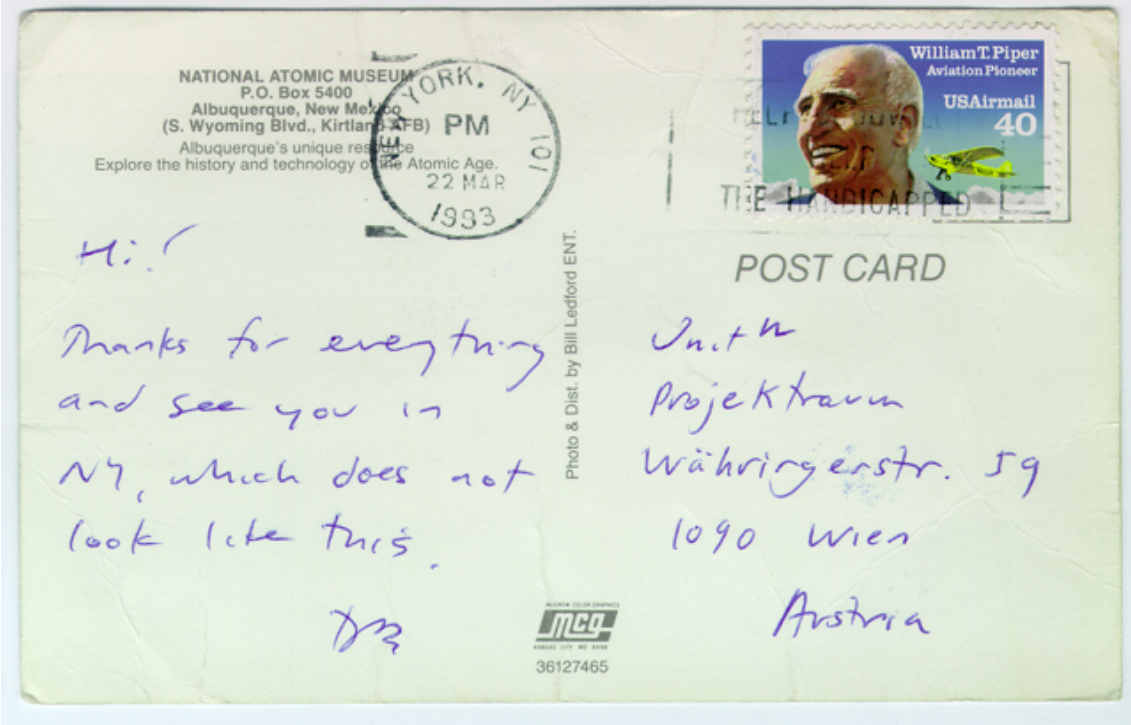 NATIONAL ATOMIC MUSEUM
P.O. Box 5400
Albuquerque, New Mexico
(S. Wyoming Blvd., Kirtland AFB)
Albuquerque's unique resource
Explore the history and technology of the Atomic Age.
NEW YORK, NY 101
PM
22 MAR
1993
William T. Piper
Aviation Pioneer
USAirmail
40
HELP
THE HANDICAPPED
POST CARD
Hi!
Thanks for everything
and see you in
NY, which does not
look like this.
Photo & Dist. by Bill Ledford ENT.
Projektraum
Währingerstr. 59
1090 Wien
Austria
McGREW COLOR GRAPHICS
mcg
KANSAS CITY, MO
36127465